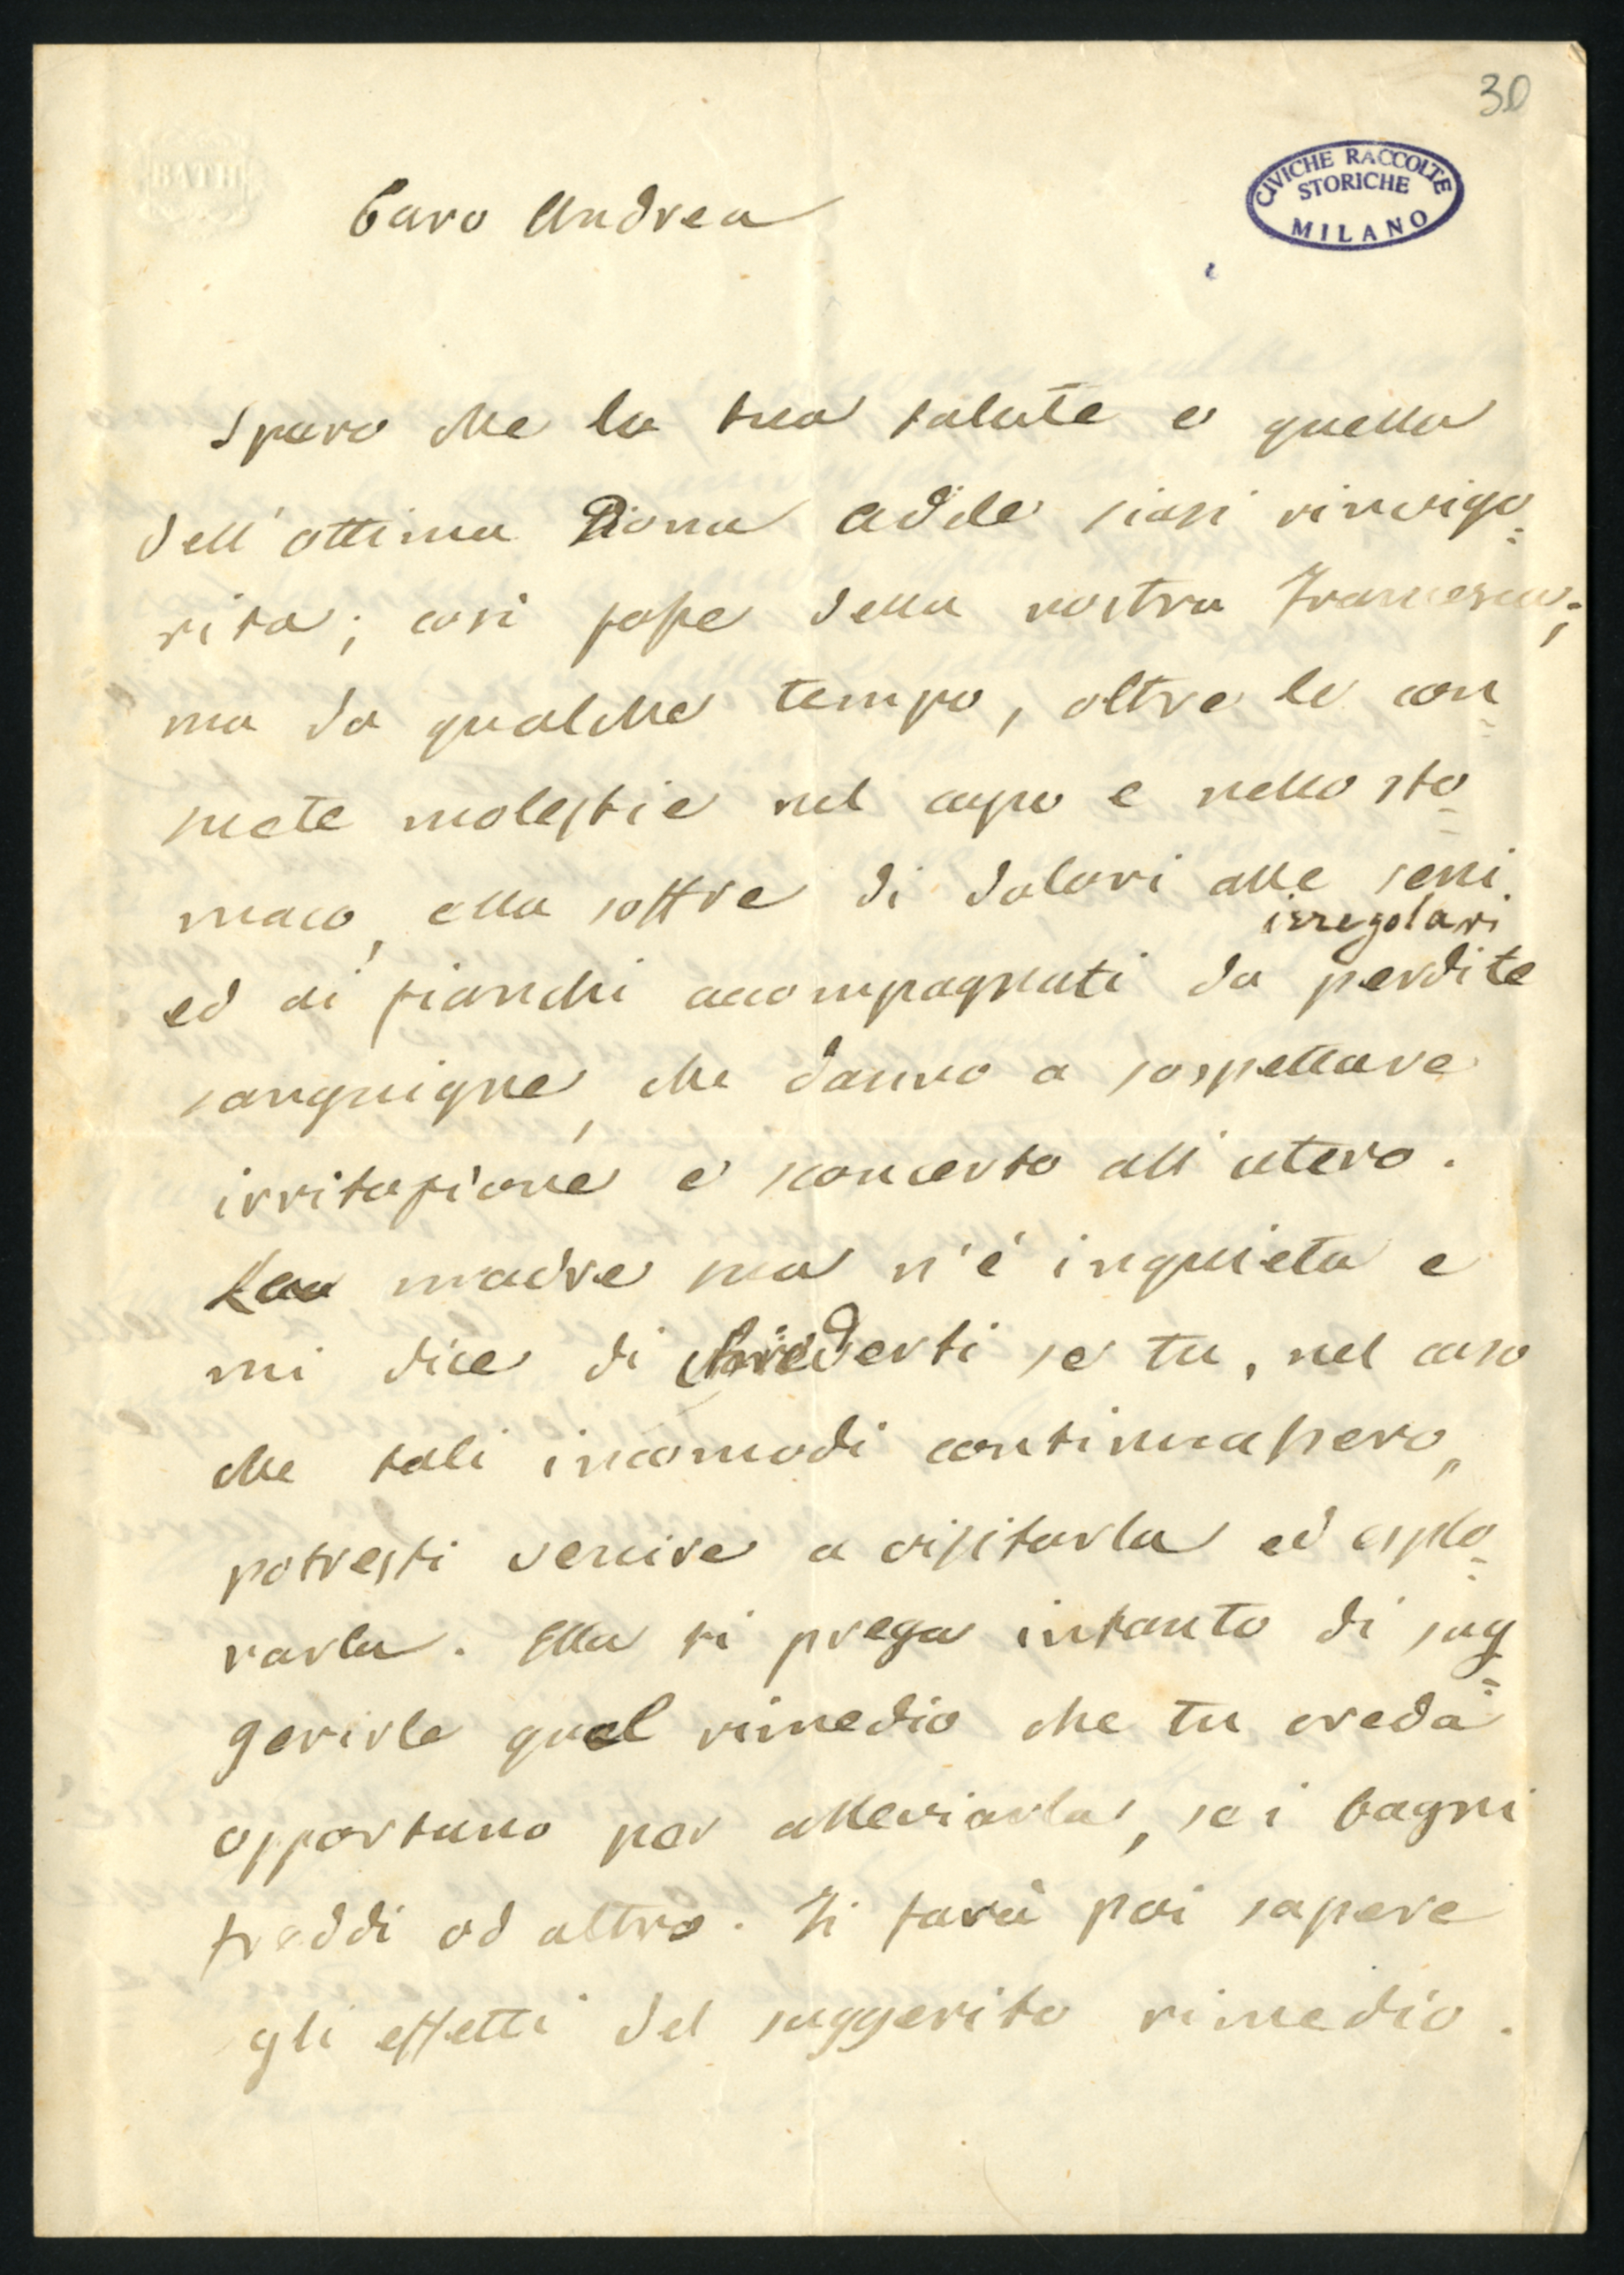 30
BATH
CIVICHE RACCOLTE
STORICHE
MILANO
Caro Andrea
Spero che la tua salute e quella
dell'ottima Donna Adele siasi rinvigo=
rita; così fosse della nostra Francesca;
ma da qualche tempo, oltre le con=
suete molestie nel capo e nello sto=
maco, ella soffre di dolori alle reni
irregolari
ed ai fianchi accompagnati da perdite
sanguigne, che danno a sospettare
irritazione e sconcerto all'utero.
La madre sua n'è inquieta e
mi dice di chiederti se tu, nel caso
che tali incomodi continuassero,
potresti venire a visitarla ed esplo=
rarla. Ella ti prega intanto di sug=
gerirle qual rimedio che tu creda
opportuno per alleviarla, se i bagni
freddi od altro. Ti farà poi sapere
gli effetti del suggerito rimedio.